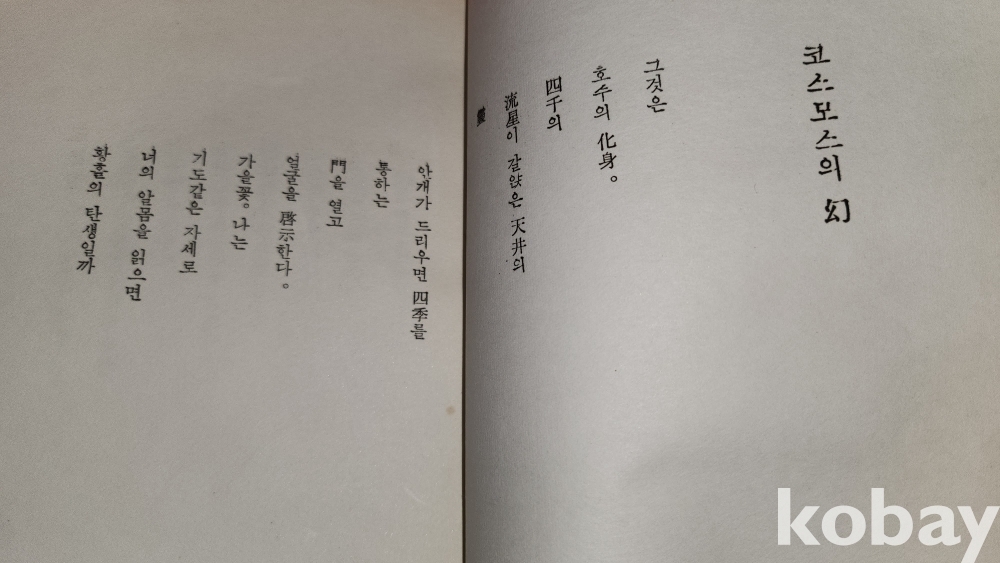 코스모스의 幻
그것은
호수의 化身。
四千의
流星이 갈앉은 天井의
안개가 드리우면 四季를
통하는
門을 열고
얼굴을 啓示한다。
가을꽃。나는
기도같은 자세로
너의 알몸을 읽으면
황홀의 탄생일까
kobay